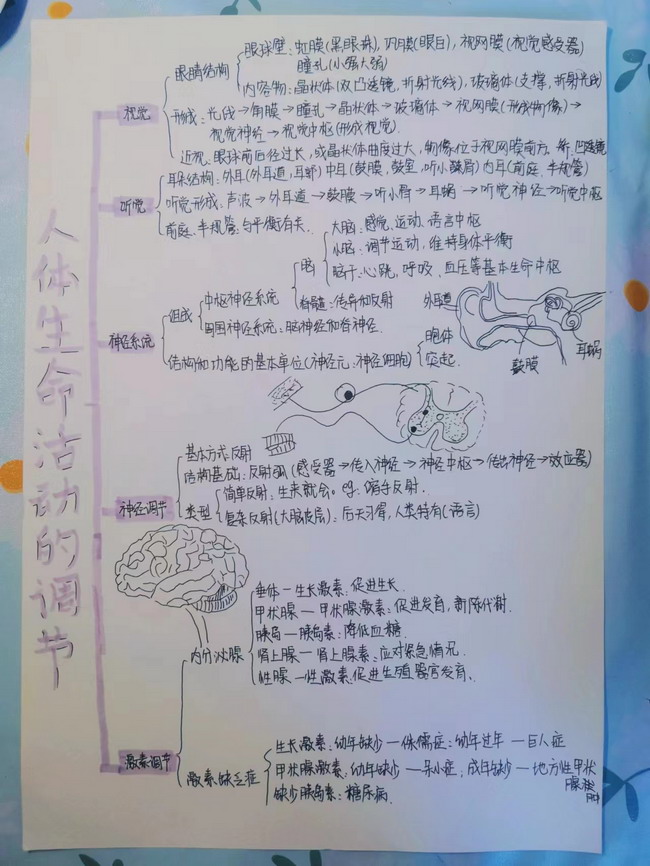 人体生命活动的调节
视觉
眼睛结构
眼球壁:虹膜(黑眼珠),巩膜(眼白),视网膜(视觉感受器)
瞳孔(小强大弱)
内容物:晶状体(双凸透镜,折射光线),玻璃体(支撑,折射光线)
形成:光线→角膜→瞳孔→晶状体→玻璃体→视网膜(形成物像)→
视觉神经→视觉中枢(形成视觉).
近视:眼球前后径过长,或晶状体曲度过大,物像位于视网膜前方. 凹透镜
听觉
耳朵结构:外耳(外耳道,耳郭)中耳(鼓膜,鼓室,听小骨)内耳(前庭、半规管)
听觉形成,声波→外耳道→鼓膜→听小骨→耳蜗→听觉神经→听觉中枢
前庭、半规管:与平衡有关.
神经系统
组成
中枢神经系统
脑
大脑:感觉,运动,语言中枢
小脑:调节运动,维持身体平衡
脑干:心跳,呼吸、血压等基本生命中枢
脊髓:传导和反射
周围神经系统:脑神经和脊神经.
结构和功能的基本单位(神经元:神经细胞)
胞体
突起.
外耳道
耳蜗
鼓膜
神经调节
基本方式:反射
结构基础:反射弧(感受器→传入神经→神经中枢→传出神经→效应器)
类型
简单反射:生来就会。eg:缩手反射.
复杂反射(大脑皮层):后天习得,人类特有(语言)
激素调节
内分泌腺
垂体—生长激素:促进生长.
甲状腺—甲状腺激素:促进发育,新陈代谢.
胰岛—胰岛素:降低血糖.
肾上腺—肾上腺素:应对紧急情况.
性腺—性激素:促进生殖器官发育、
激素缺乏症
生长激素:幼年缺少—侏儒症;幼年过年—巨人症
甲状腺激素:幼年缺少—呆小症;成年缺少—地方性甲状
腺肿
缺少胰岛素:糖尿病.